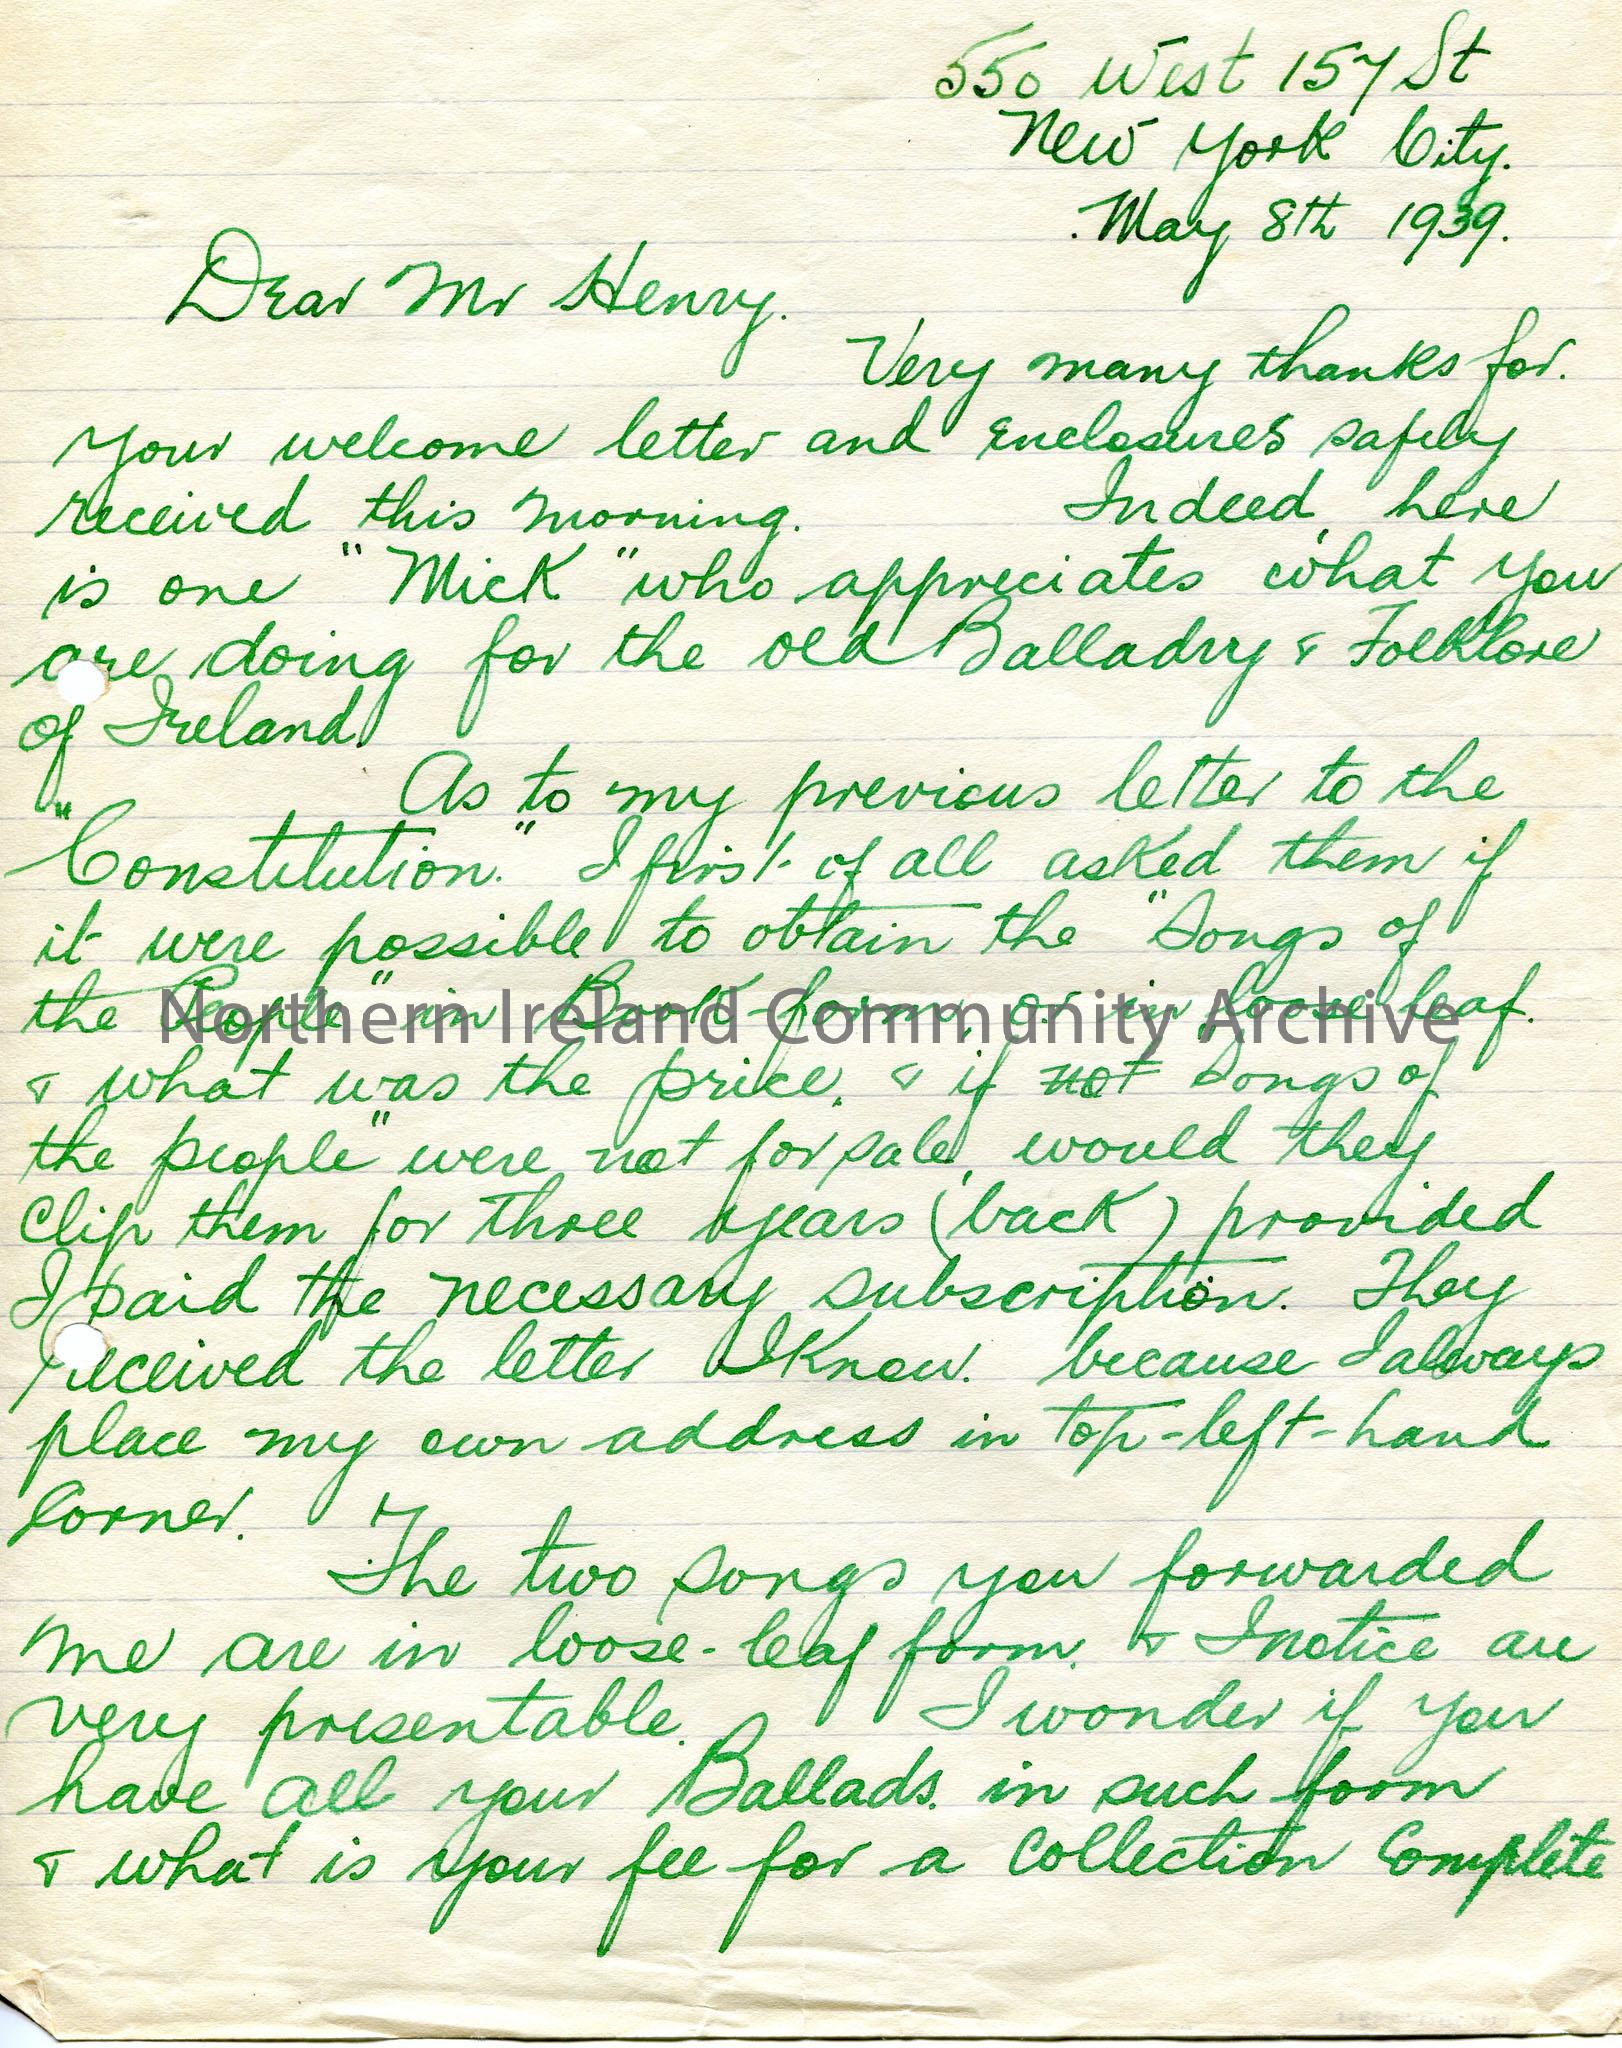 550 West 157 St
New York City.
May 8th 1939.
Dear Mr Henry.
Very many thanks for.
your welcome letter and enclosures safely
received this morning. Indeed, here
is one "Mick" who appreciates what you
are doing for the old Balladry & Folklore
of Ireland.
As to my previous letter to the
"Constitution." I first of all asked them if
it were possible to obtain the "Songs of
the People" in Book-form, or in loose leaf.
Northern Ireland Community Archive
& what was the price, & if not Songs of
the people" were not for sale, would they
clip them for three years (back) provided
I paid the necessary subscription. They
received the letter I Know. because I always
place my own address in top-left-hand
Corner.
The two songs you forwarded
me are in loose-leaf form. & I notice are
very presentable. I wonder if you
have all your Ballads. in such form
& what is your fee for a Collection Complete